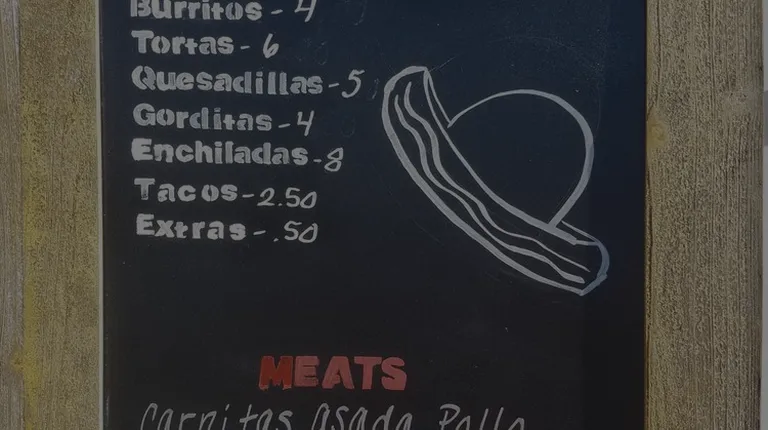 Burritos - 4
Tortas - 6
Quesadillas - 5
Gorditas - 4
Enchiladas - 8
Tacos - 2.50
Extras - .50
MEATS
Carnitas Asada Pollo